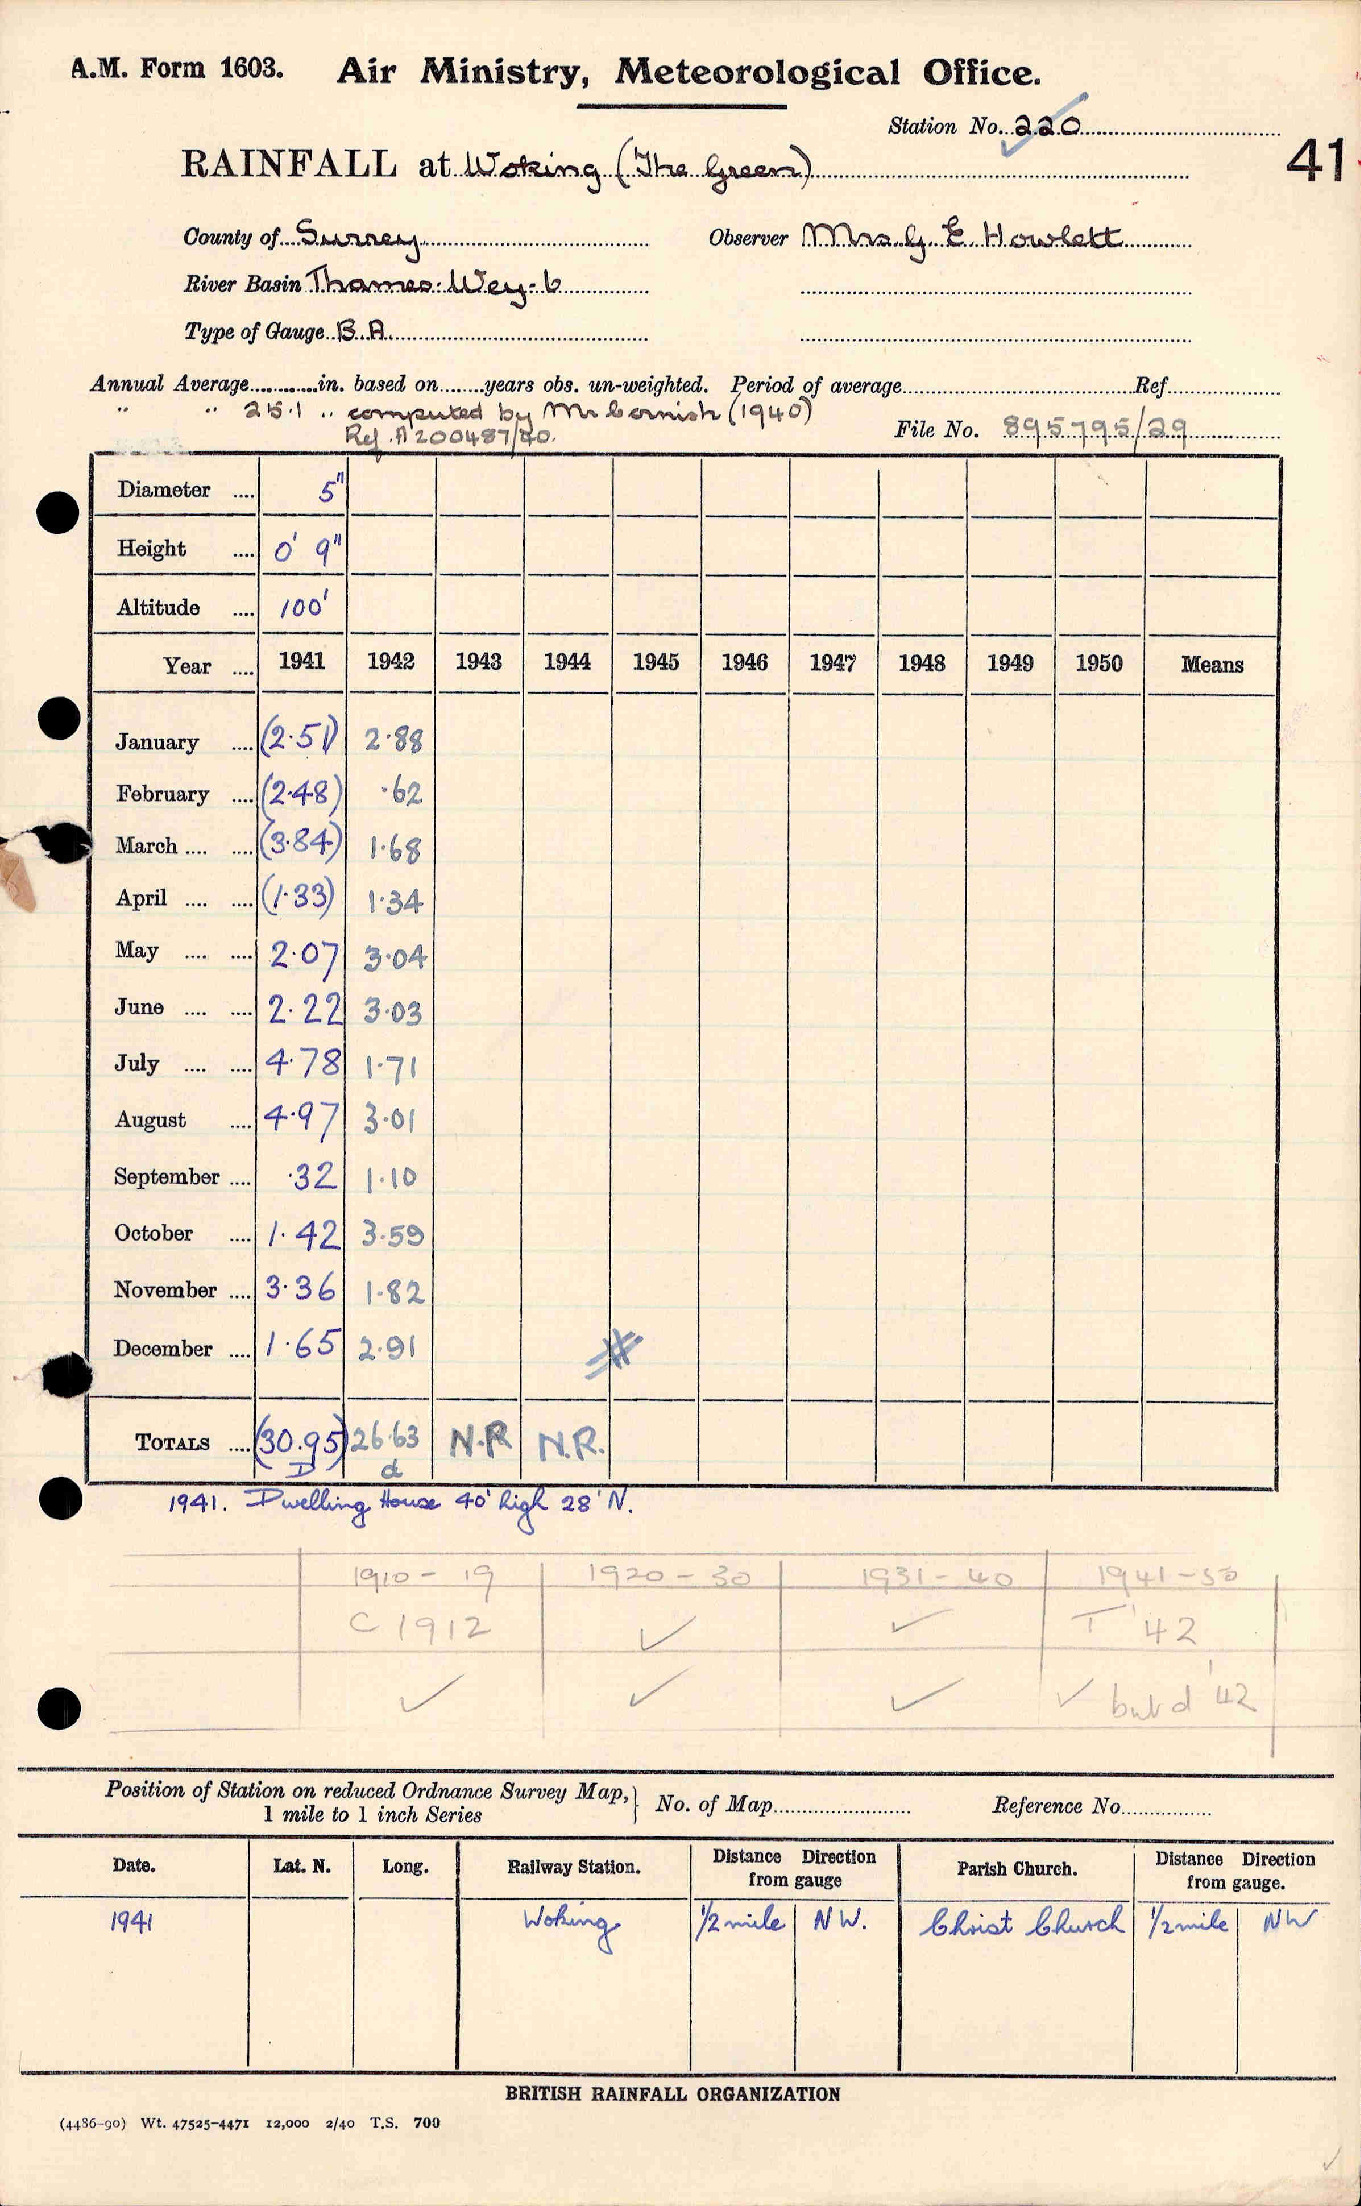 A.M. Form 1603. Air Ministry, Meteorological Office.
Station No. 220
41
RAINFALL at Woking (The Green)
County of Surrey Observer Mrs G E Howlett
River Basin Thames-Wey-6
Type of Gauge B.A.
Annual Average............in. based on........years obs. un-weighted. Period of average........Ref........
" " 25.1 " computed by Mr Cornish (1940)
Ref. A200487/40. File No. 895795/29
Diameter .... 5"
Height .... 0' 9"
Altitude .... 100'
Year .... 1941 1942 1943 1944 1945 1946 1947 1948 1949 1950 Means
January .... (2.51) 2.88
February .... (2.48) .62
March .... .... (3.84) 1.68
April .... .... (1.33) 1.34
May .... .... 2.07 3.04
June .... .... 2.22 3.03
July .... .... 4.78 1.71
August .... 4.97 3.01
September .... .32 1.10
October .... 1.42 3.59
November .... 3.36 1.82
December .... 1.65 2.91
TOTALS .... (30.95) 26.63 N.R N.R.
D d
1941. Dwelling House 40' high 28' N.
1910-19 1920-30 1931-40 1941-50
C 1912 ✓ ✓ T '42
✓ ✓ ✓ ✓ but d '42
Position of Station on reduced Ordnance Survey Map,} No. of Map........ Reference No........
1 mile to 1 inch Series
Date. Lat. N. Long. Railway Station. Distance Direction from gauge Parish Church. Distance Direction from gauge.
1941 Woking 1/2 mile NW. Christ Church 1/2 mile NW
BRITISH RAINFALL ORGANIZATION
(4486-90) Wt. 47525-4471 12,000 2/40 T.S. 700